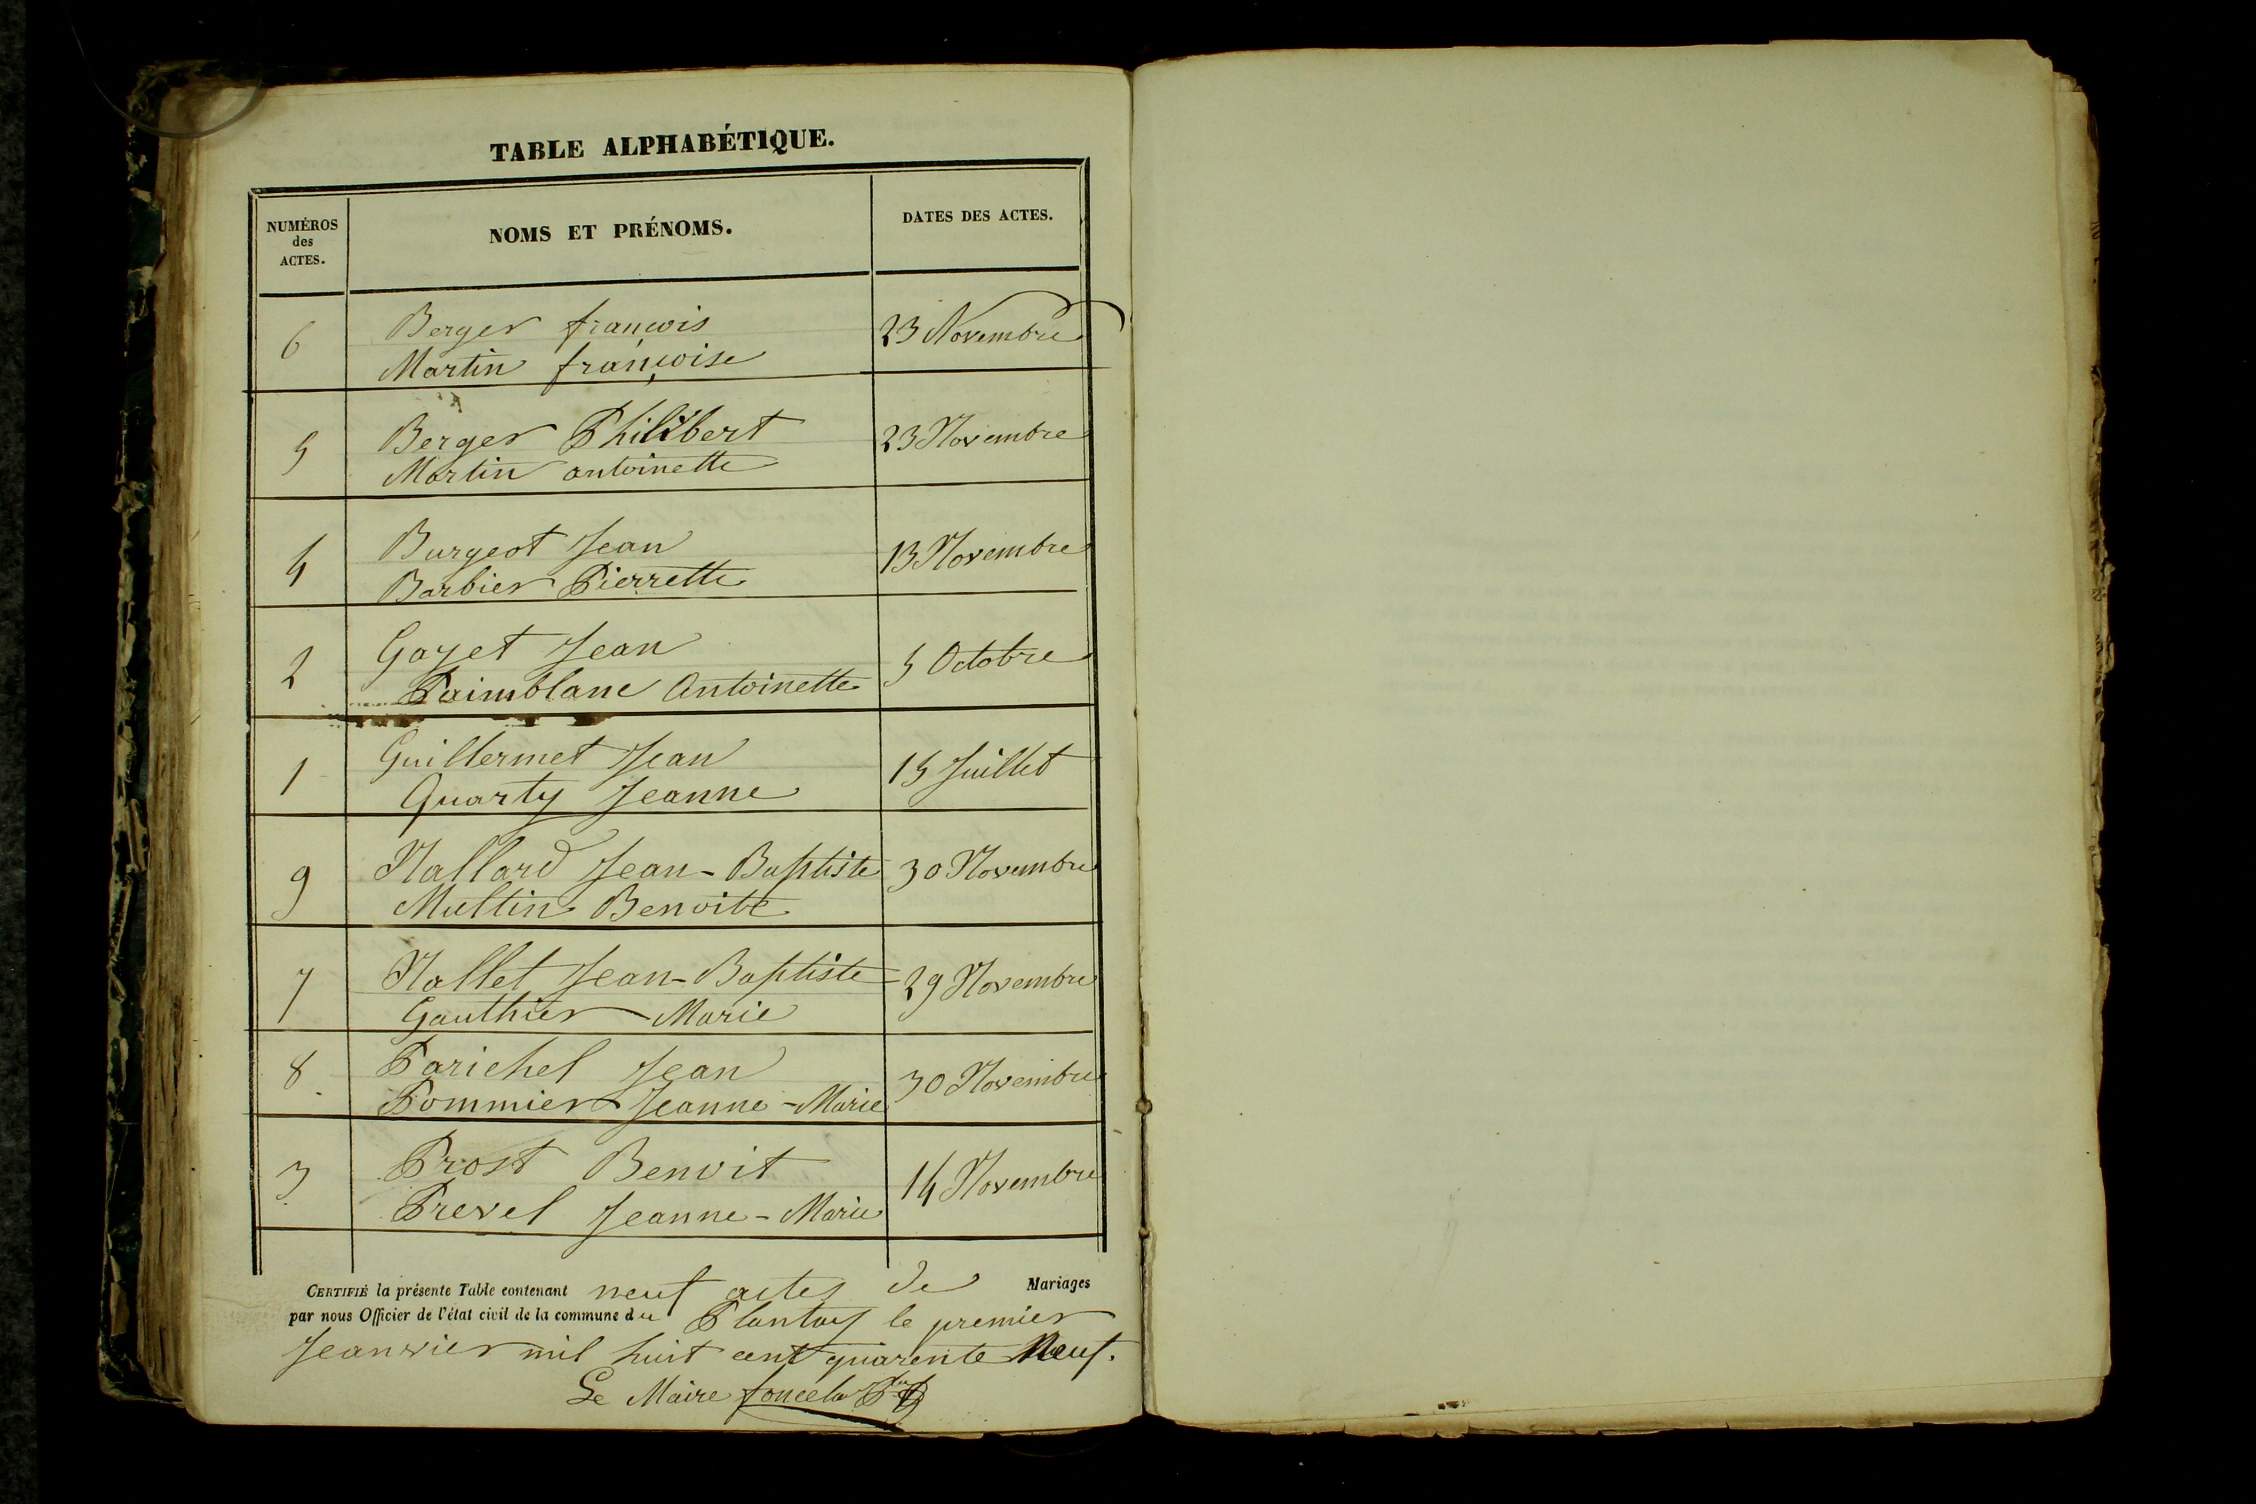 TABLE ALPHABÉTIQUE.
NUMÉROS
des
ACTES.
NOMS ET PRÉNOMS.
DATES DES ACTES.
6
Berger françois
23 Novembre
Martin françoise
5
Berger Philibert
23 Novembre
Martin antoinette
4
Burgeot Jean
13 Novembre
Barbier Pierrette
2
Gayet Jean
5 Octobre
Paimblanc Antoinette
1
Guillermet Jean
15 Juillet
Quarty Jeanne
9
Nallard Jean-Baptiste
30 Novembre
Multin Benoite
7
Nallet Jean-Baptiste
29 Novembre
Gauthier Marie
8
Parichel Jean
30 Novembre
Pommier Jeanne-Marie
3
Prost Benoit
14 Novembre
Prevel Jeanne-Marie
CERTIFIÉ la présente Table contenant neuf actes de Mariages
par nous Officier de l'état civil de la commune du Plantay le premier
Jeanvier mil huit cent quarente Neuf.
Le Maire